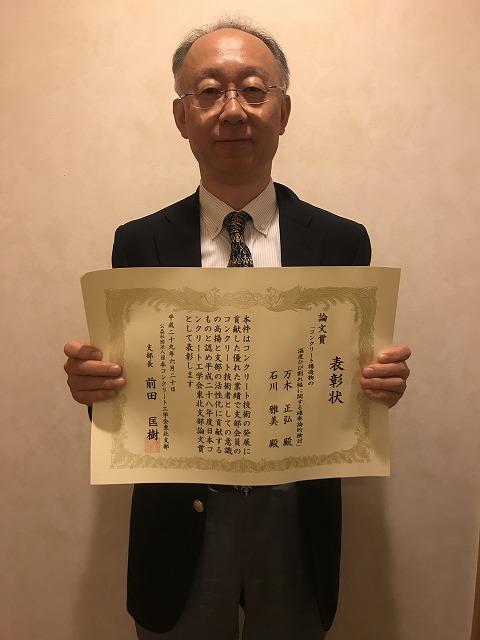 表彰状
論文賞
「コンクリート構造物の
温度ひび割れ幅に関する確率論的検討」
万木 正弘 殿
石川 雅美 殿
本件はコンクリート技術の発展に
貢献した優れた業績で支部会員の
コンクリート技術者としての意識
の高揚と支部の活性化に貢献する
ものと認め平成二十八年度日本コ
ンクリート工学会東北支部論文賞
として表彰します
平成二十九年六月二十日
公益社団法人日本コンクリート工学会東北支部
支部長 前田 匡樹